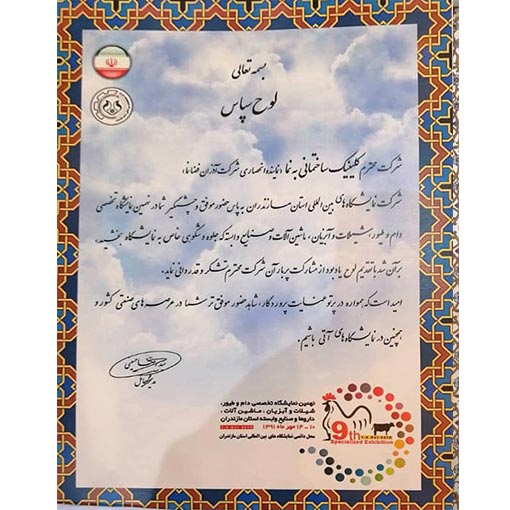 بسمه تعالی
لوح سپاس
شرکت محترم کلینیک ساختمانی به نما (نماینده انحصاری شرکت آذران فضانما)
شرکت نمایشگاه‌های بین المللی استان مازندران به پاس حضور موفق و چشمگیر شما در نهمین نمایشگاه تخصصی
دام و طیور، شیلات و آبزیان، ماشین آلات و صنایع وابسته که جلوه و شکوهی خاص به نمایشگاه بخشید،
بر آن شد با تقدیم لوح یادبود از مشارکت پربار آن شرکت محترم تشکر و قدردانی نماید.
امید است که همواره در پرتو عنایت پروردگار، شاهد حضور موفق تر شما در عرصه های صنعتی کشور و
همچنین در نمایشگاه های آتی باشیم.
مدیرعامل
نهمین نمایشگاه تخصصی دام و طیور،
شیلات و آبزیان، ماشین آلات،
داروها و صنایع وابسته استان مازندران
۱۰ - ۱۳ مهر ماه ۱۳۹۱
محل دائمی نمایشگاه های بین المللی استان مازندران
9th
Specialized Exhibition